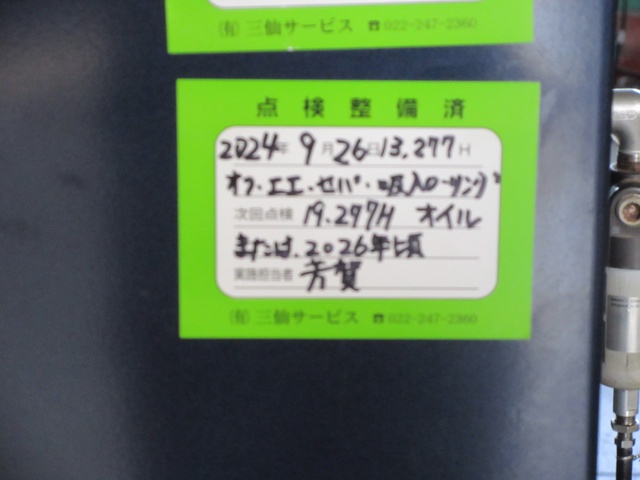 (有) 三仙サービス ☎022-247-2360
点検整備済
2024年 9月26日 13,277H
オフ・エエ・セパ・吸入Oーリング
次回点検 19.297H オイル
または、2026年頃
実施担当者 芳賀
(有) 三仙サービス ☎022-247-2360